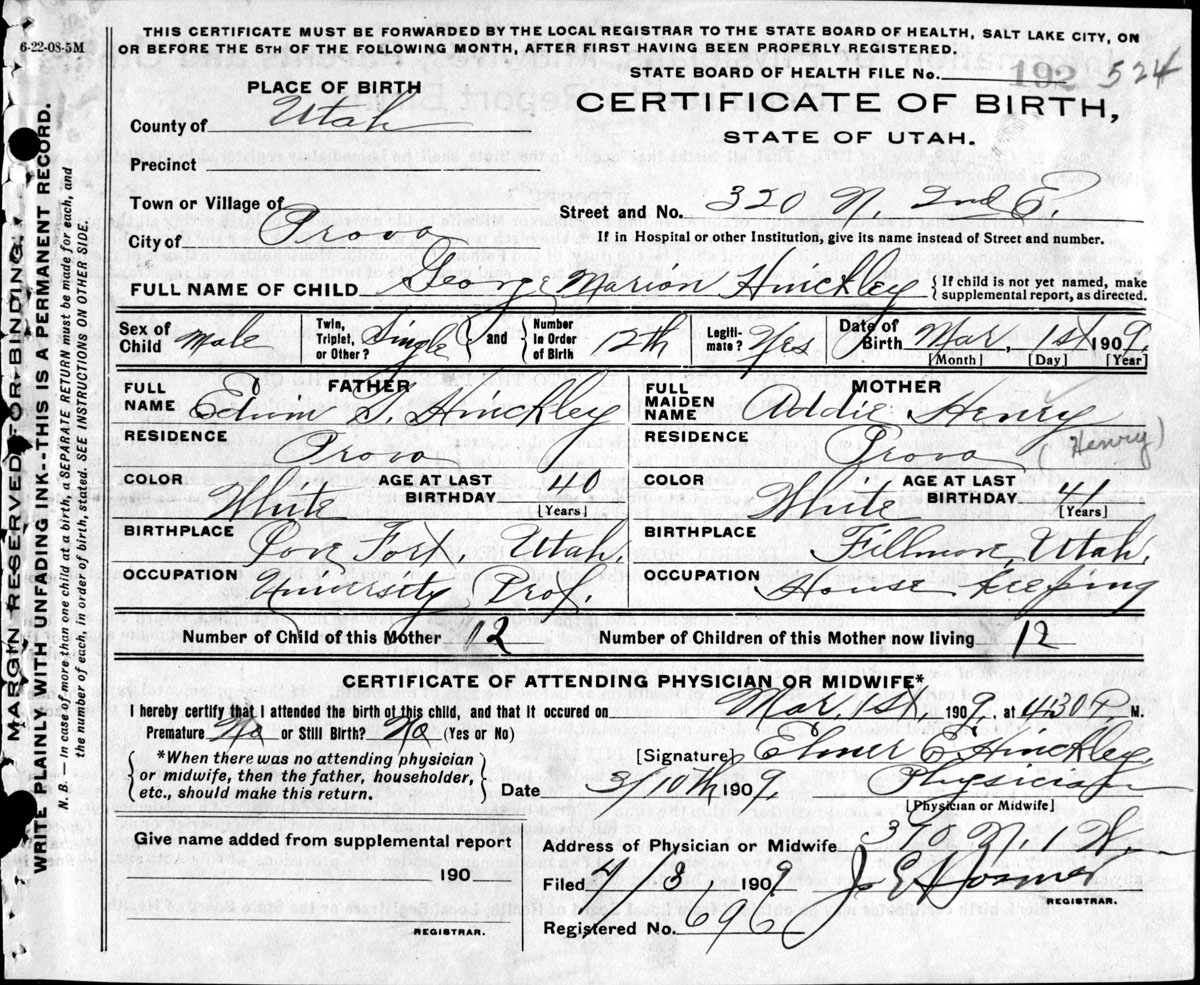 6-22-08-5M
THIS CERTIFICATE MUST BE FORWARDED BY THE LOCAL REGISTRAR TO THE STATE BOARD OF HEALTH, SALT LAKE CITY, ON
OR BEFORE THE 5TH OF THE FOLLOWING MONTH, AFTER FIRST HAVING BEEN PROPERLY REGISTERED.
STATE BOARD OF HEALTH FILE No. 192 524
PLACE OF BIRTH
CERTIFICATE OF BIRTH,
STATE OF UTAH.
County of Utah
Precinct
Town or Village of
Street and No. 320 N. 2nd E.
City of Provo
If in Hospital or other Institution, give its name instead of Street and number.
FULL NAME OF CHILD George Marion Hinckley { If child is not yet named, make supplemental report, as directed.
Sex of Child Male Twin, Triplet, or Other? Single and Number in Order of Birth 12th Legitimate? Yes Date of Birth Mar, 1st 1909.
[Month] [Day] [Year]
FATHER MOTHER
FULL NAME Edwin S. Hinckley FULL MAIDEN NAME Addie Henry
RESIDENCE Provo RESIDENCE Provo (Henry)
COLOR White AGE AT LAST BIRTHDAY 40 [Years] COLOR White AGE AT LAST BIRTHDAY 41 [Years]
BIRTHPLACE Cove Fort Utah. BIRTHPLACE Fillmore, Utah.
OCCUPATION University Prof. OCCUPATION House Keeping
Number of Child of this Mother 12 Number of Children of this Mother now living 12
CERTIFICATE OF ATTENDING PHYSICIAN OR MIDWIFE*
I hereby certify that I attended the birth of this child, and that it occured on Mar, 1st, 1909, at 4:30 P. M.
Premature No or Still Birth? No (Yes or No)
[Signature] Elmer E Hinckley,
*When there was no attending physician or midwife, then the father, householder, etc., should make this return.
Date 3/10th 1909. Physician
[Physician or Midwife]
Give name added from supplemental report
Address of Physician or Midwife 370 N. 1 W.
190
Filed 4/3, 1909 J. E.
REGISTRAR.
Registered No. 696
REGISTRAR.
MARGIN RESERVED FOR BINDING.
WRITE PLAINLY WITH UNFADING INK--THIS IS A PERMANENT RECORD.
N. B.—In case of more than one child at a birth, a SEPARATE RETURN must be made for each, and
the number of each, in order of birth, stated. SEE INSTRUCTIONS ON OTHER SIDE.